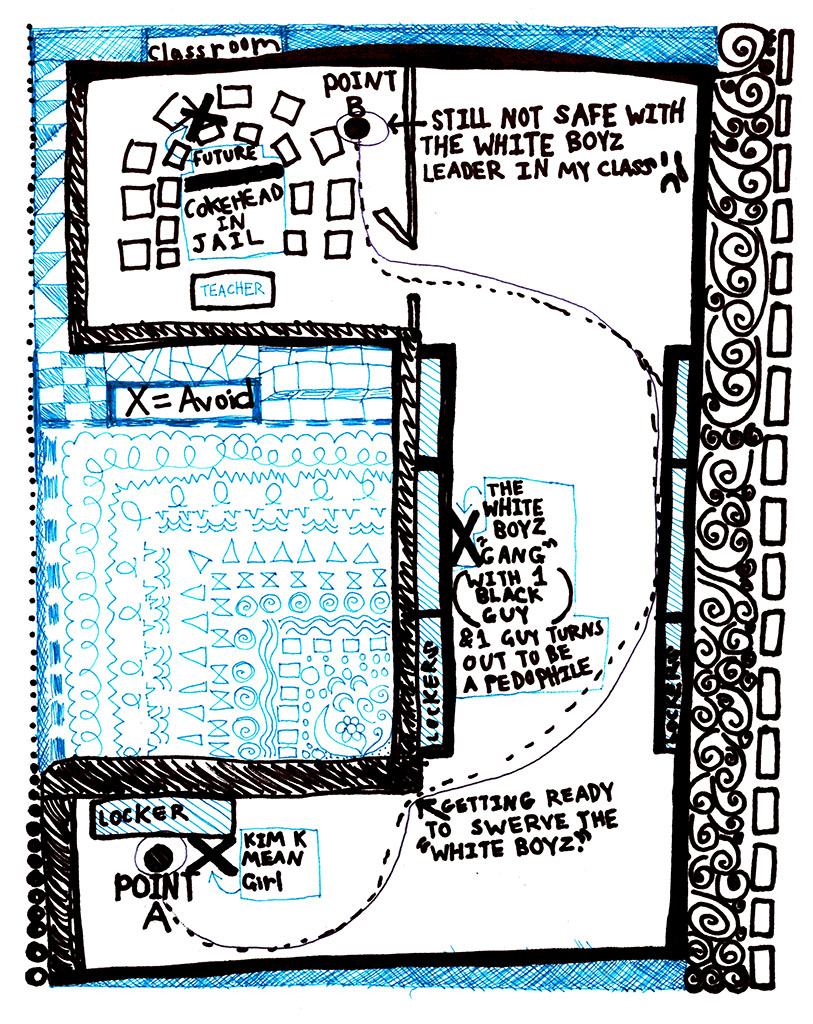 Classroom
POINT
B
STILL NOT SAFE WITH
THE WHITE BOYZ
LEADER IN MY CLASS
FUTURE
COKEHEAD
IN
JAIL
TEACHER
X = Avoid
THE
WHITE
BOYZ
"GANG"
(WITH 1
BLACK
GUY)
& 1 GUY TURNS
OUT TO BE
A PEDOPHILE
LOCKERS
LOCKERS
GETTING READY
TO SWERVE THE
"WHITE BOYZ."
LOCKER
KIM K
MEAN
Girl
POINT
A